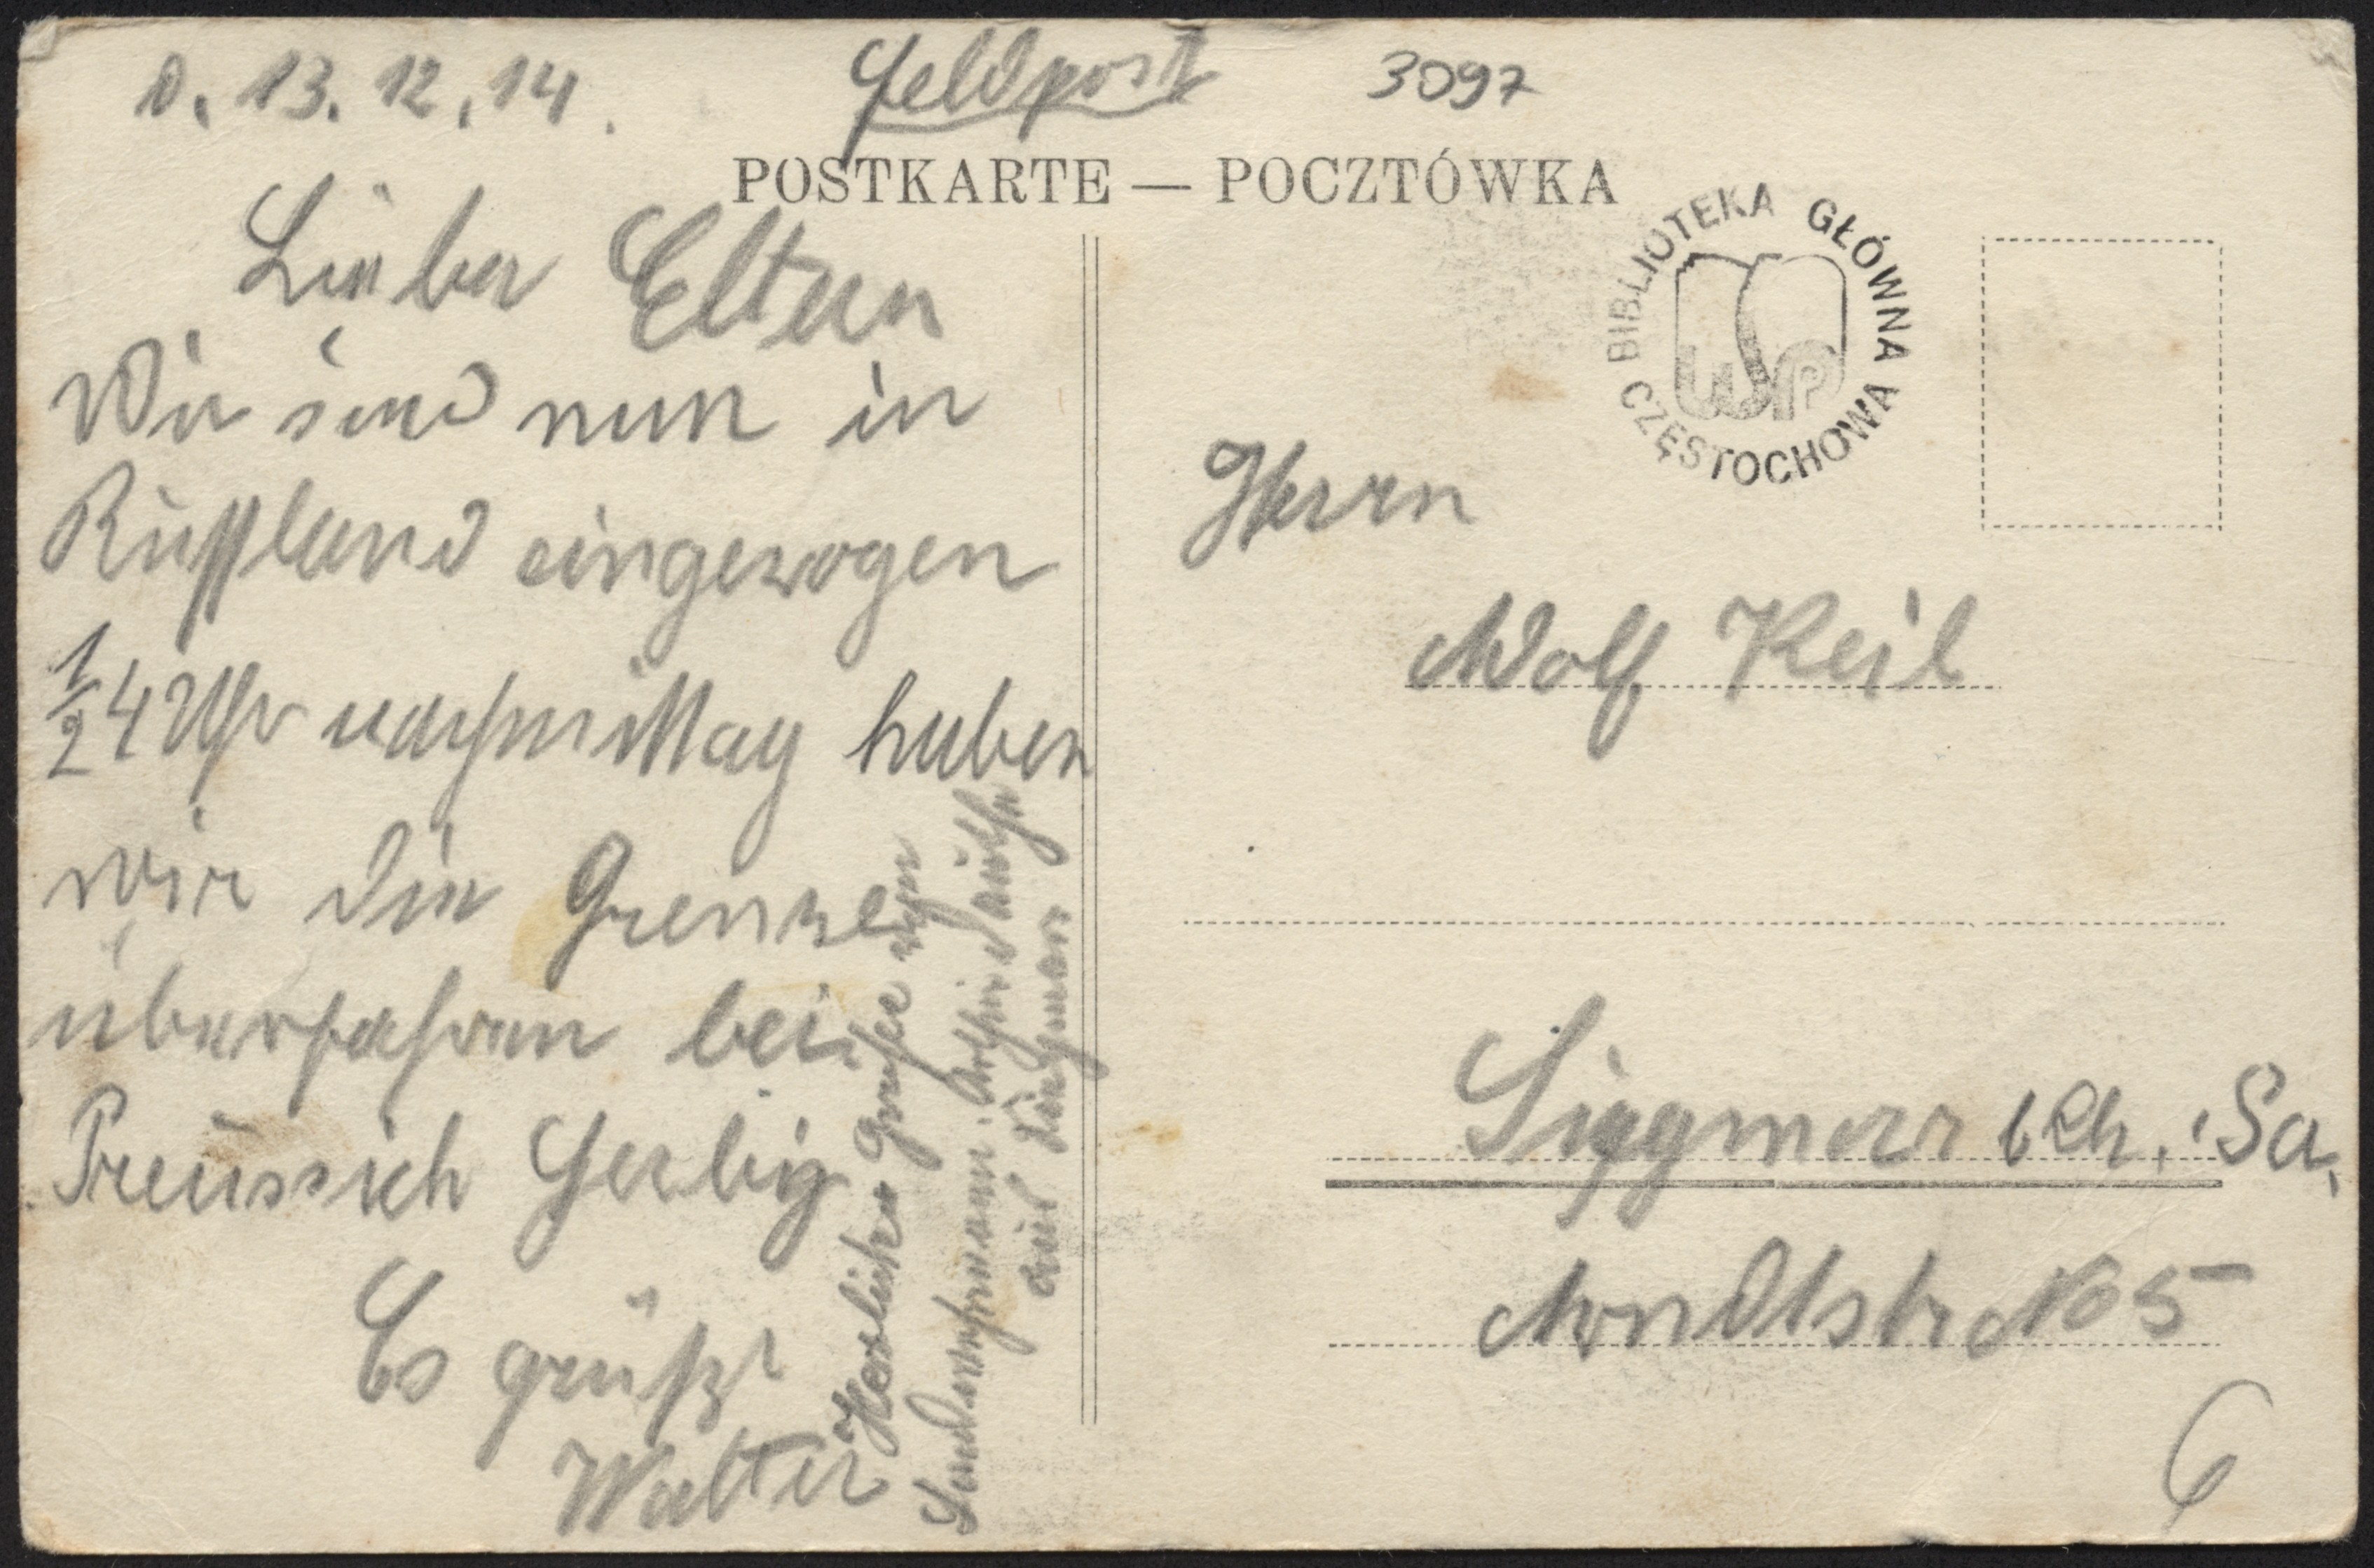 D. 13.12.14.
Feldpost
3097
POSTKARTE — POCZTÓWKA
Liebe Eltern
Wir sind nun in
Russland eingezogen
1/2 4 Uhr nachmittag haben
wir die Grenze
überfahren bei
Preussich Herby
Es grüßt
Walter
Herzliche Grüße von
Landwehrmann Arthur
aus Siegmar
BIBLIOTEKA GŁÓWNA
WSP
CZĘSTOCHOWA
Herrn
Adolf Keil
Siegmar b Ch. Sa.
Arndtstr No 5
6